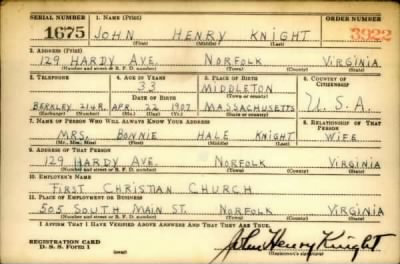 SERIAL NUMBER 1. NAME (Print) ORDER NUMBER
1675 JOHN HENRY KNIGHT 3922
(First) (Middle) (Last)
2. ADDRESS (Print)
129 HARDY AVE. NORFOLK VIRGINIA
(Number and street or R. F. D. number) (Town) (County) (State)
3. TELEPHONE 4. AGE IN YEARS 5. PLACE OF BIRTH 6. COUNTRY OF CITIZENSHIP
33 MIDDLETON
DATE OF BIRTH (Town or county)
BERKLEY 214R. APR. 22 1907 MASSACHUSETTS U.S.A.
(Exchange) (Number) (Mo.) (Day) (Yr.) (State or country)
7. NAME OF PERSON WHO WILL ALWAYS KNOW YOUR ADDRESS 8. RELATIONSHIP OF THAT PERSON
MRS. BONNIE HALE KNIGHT WIFE
(Mr., Mrs., Miss) (First) (Middle) (Last)
9. ADDRESS OF THAT PERSON
129 HARDY AVE. NORFOLK VIRGINIA
(Number and street or R. F. D. number) (Town) (County) (State)
10. EMPLOYER'S NAME
FIRST CHRISTIAN CHURCH
11. PLACE OF EMPLOYMENT OR BUSINESS
505 SOUTH MAIN ST. NORFOLK VIRGINIA
(Number and street or R. F. D. number) (Town) (County) (State)
I AFFIRM THAT I HAVE VERIFIED ABOVE ANSWERS AND THAT THEY ARE TRUE.
REGISTRATION CARD John Henry Knight
D. S. S. FORM 1 (Registrant's signature)